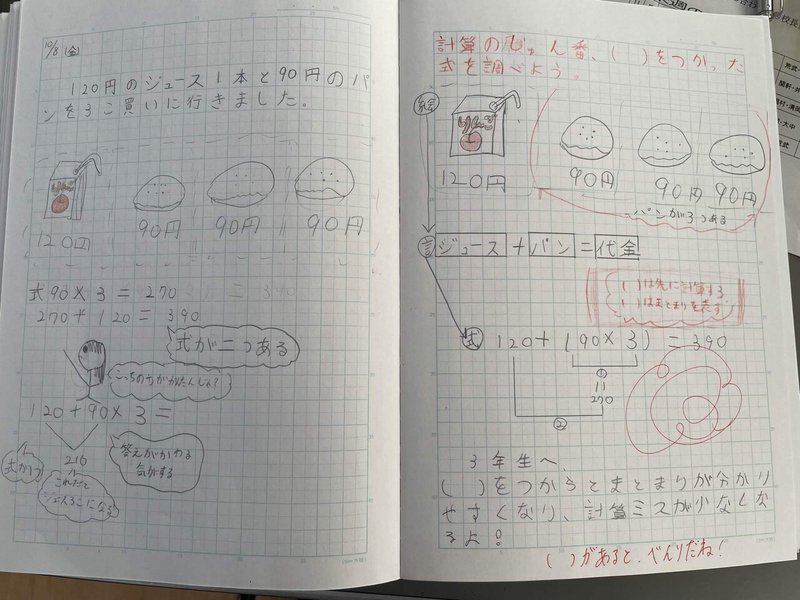 10/8 (金)
120円のジュース1本と90円のパ
ンを3こ買いに行きました。
りんご
120円
90円
90円
90円
式 90×3=270
270+120=390
式が二つある
こっちの方がかんたんじゃん?
120+90×3=
210
答えがかわる
気がする
式が1つ
これだと
計算の順番、( )をつかった
式を調べよう。
絵
りんご
120円
90円
90円
90円
パンが3つある
言
ジュース+パン=代金
( )は先に計算する
( )はまとまりを表す
式
120+(90×3)=390
①
270
②
3年生へ、
( )をつかうとまとまりが分かり
やすくなり、計算ミスが少なくな
るよ!
( )があると、べんりだね!